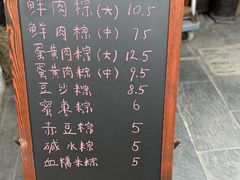 鲜肉粽(大) 10.5
鲜肉粽(中) 7.5
蛋黄肉粽(大) 12.5
蛋黄肉粽(中) 9.5
豆沙粽 8.5
蜜枣粽 6
赤豆粽 5
碱水粽 5
血糯米粽 5